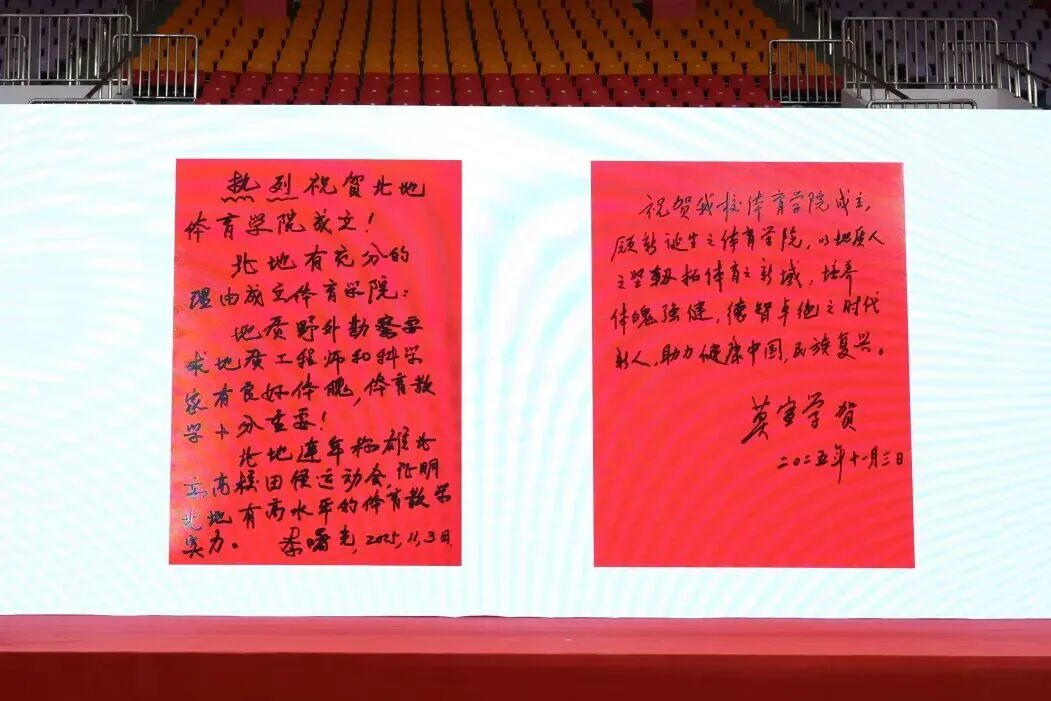 热烈祝贺北地
体育学院成立！
北地有充分的
理由成立体育学院：
地质野外勘察要
求地质工程师和科学
家有良好体魄，体育教
学十分重要！
北地连年称雄北
京高校田径运动会，证明
北地有高水平的体育教学
实力。 李曙光，2025，11，3日．
祝贺我校体育学院成立，
愿新诞生之体育学院，以地质人
之坚韧拓体育之新域，培养
体魄强健，德智卓绝之时代
新人，助力健康中国，民族复兴。
莫宣学贺
二〇二五年十一月三日